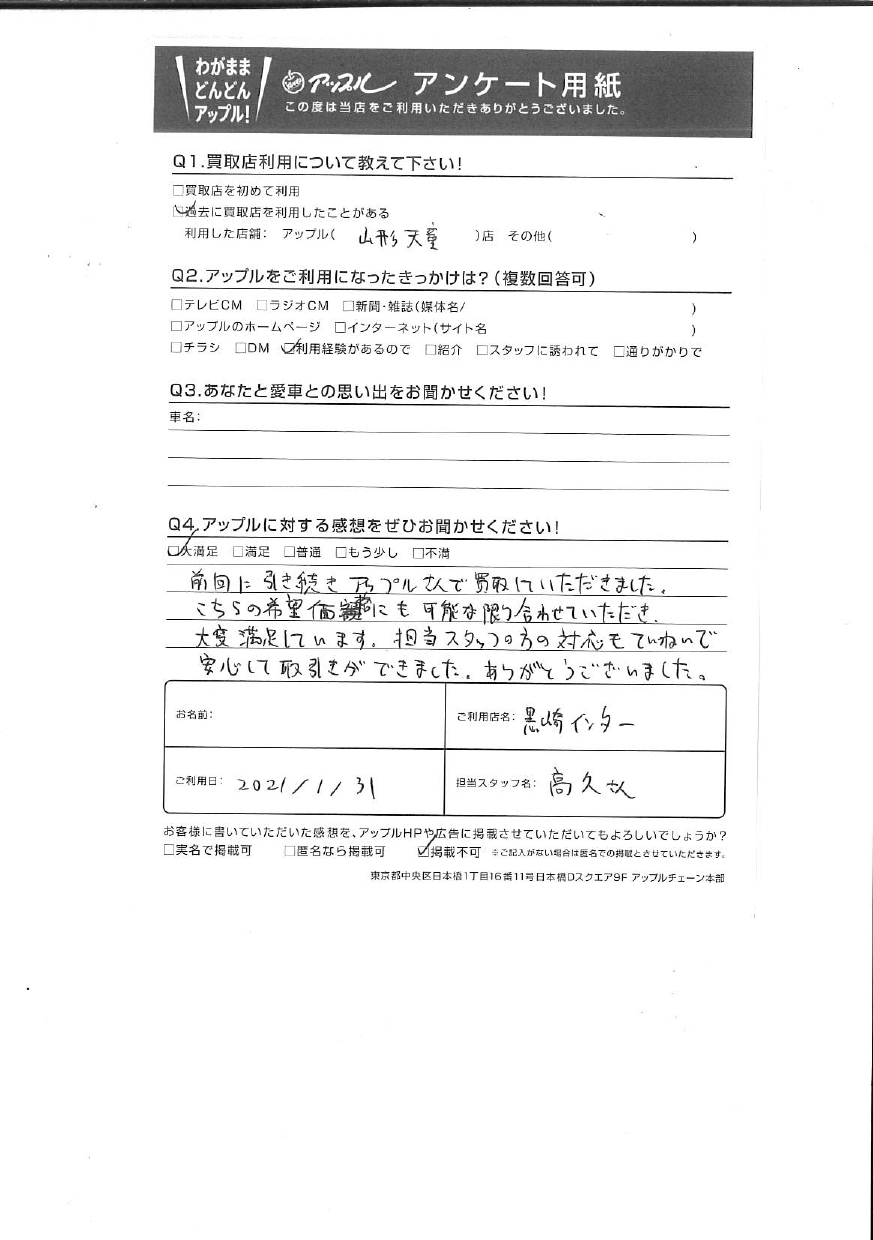 わがまま
どんどん
アップル!
アップル アンケート用紙
この度は当店をご利用いただきありがとうございました。
Q1.買取店利用について教えて下さい!
□買取店を初めて利用
☑過去に買取店を利用したことがある
利用した店舗: アップル( 山形天童 )店 その他( )
Q2.アップルをご利用になったきっかけは?(複数回答可)
□テレビCM □ラジオCM □新聞・雑誌(媒体名/ )
□アップルのホームページ □インターネット(サイト名 )
□チラシ □DM ☑利用経験があるので □紹介 □スタッフに誘われて □通りがかりで
Q3.あなたと愛車との思い出をお聞かせください!
車名:
Q4.アップルに対する感想をぜひお聞かせください!
☑大満足 □満足 □普通 □もう少し □不満
前回に引き続きアップルさんで買取していただきました。
こちらの希望価格にも可能な限り合わせていただき、
大変満足しています。担当スタッフの方の対応もていねいで
安心して取引きができました。ありがとうございました。
お名前:
ご利用店名: 黒崎インター
ご利用日: 2021/1/31
担当スタッフ名: 高久さん
お客様に書いていただいた感想を、アップルHPや広告に掲載させていただいてもよろしいでしょうか?
□実名で掲載可 □匿名なら掲載可 ☑掲載不可 ※ご記入がない場合は匿名での掲載とさせていただきます。
東京都中央区日本橋1丁目16番11号日本橋Dスクエア9F アップルチェーン本部